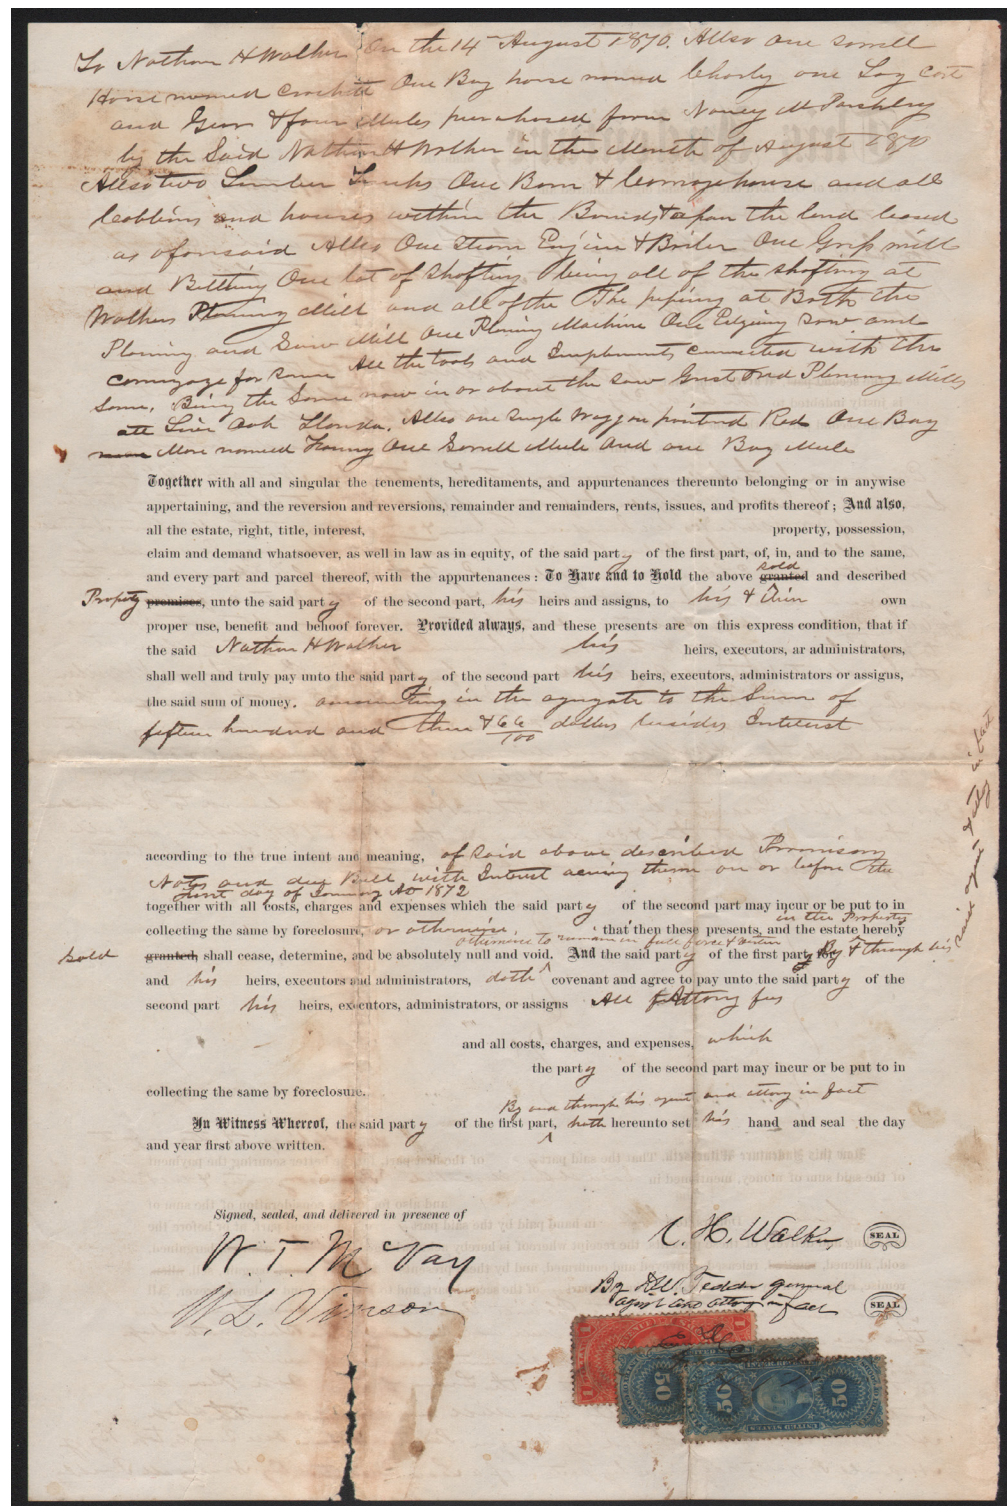 To Nathan H Walker On the 14 August 1870. Allso one sorrell
Horse named Crockett One Bay horse named Charly one Log Cart
and Gear & four Mules purchased from Nancy M Parshley
by the Said Nathan H Walker in the Month of August 1870
Allso two Lumber Trucks One Barn & Carriagehouse and all
Cabbins and houses within the Bounds & upon the land leased
as aforesaid Allso One Steam Engine & Boiler One Grist mill
and Bettting One lot of Shafting being all of the shafting at
Walkers Planing Mill and all of the The pipeing at Both the
Planing and Saw Mill One Planing Machine One Edgeing saw and
carriage for same All the tools and Impliments connected with the
Same, Being the Same now in or about the saw Grist and Planing Mills
att Live Oak Florida. Allso one single Waggon painted Red One Bay
Mare named Fanny One Sorrell Mule and one Bay Mule
Together with all and singular the tenements, hereditaments, and appurtenances thereunto belonging or in anywise
appertaining, and the reversion and reversions, remainder and remainders, rents, issues, and profits thereof; And also,
all the estate, right, title, interest, property, possession,
claim and demand whatsoever, as well in law as in equity, of the said party of the first part, of, in, and to the same,
sold
and every part and parcel thereof, with the appurtenances: To Have and to Hold the above granted and described
Property premises, unto the said party of the second part, his heirs and assigns, to his & their own
proper use, benefit and behoof forever. Provided always, and these presents are on this express condition, that if
the said Nathan H Walker his heirs, executors, ar administrators,
shall well and truly pay unto the said party of the second part his heirs, executors, administrators or assigns,
the said sum of money. amounting in the agragate to the Sum of
fifteen hundred and three & 66/100 dollars besides Interest
according to the true intent and meaning, of said above described Promisory
Notes and due Bill with Interest acruing theron on or before the
first day of January AD 1872
together with all costs, charges and expenses which the said party of the second part may incur or be put to in
in this Property
collecting the same by foreclosure, or otherwise, that then these presents, and the estate hereby
otherwise to remain in full force & virtue
sold granted, shall cease, determine, and be absolutely null and void. And the said party of the first part, for By & through his
said agent & atty in fact
and his heirs, executors and administrators, doth covenant and agree to pay unto the said party of the
second part his heirs, executors, administrators, or assigns All Attorny fees
and all costs, charges, and expenses, which
the party of the second part may incur or be put to in
collecting the same by foreclosure.
By and through his agent and attory in fact
In Witness Whereof, the said party of the first part, hath hereunto set his hand and seal the day
and year first above written.
Signed, sealed, and delivered in presence of
W. T. McVay
W. L. Vinson
N. H. Walker SEAL
By D.W. Tedder general
agent and attory in fact SEAL
1
50
50